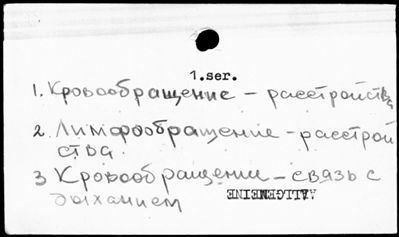 1.ser.
1. Кровообращение – расстройства
2. Лимфообращение – расстрой
ства.
3 Кровообращение – связь с
дыханием
ALLGEMEINE